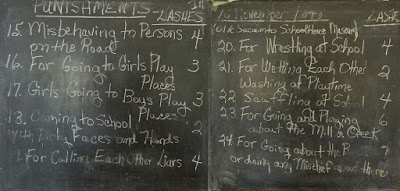 PUNISHMENTS
LASHES
15. Misbehaving to Persons 4
on the Road
16. For Going to Girls Play 3
Places
17. Girls Going to Boys Play 3
Places
18. Coming to School 2
With Dirty Faces and Hands
For Calling Each Other Liars 4
November
Old Sacramento Schoolhouse Museum
LASHES
20. For Wrestling at School 4
21. For Wetting Each Other 2
Washing at Playtime
22. Scuffling at School 4
23. For Going and Playing 6
about the Mill or Creek
24. For Going about the 7
or doing any Mischief